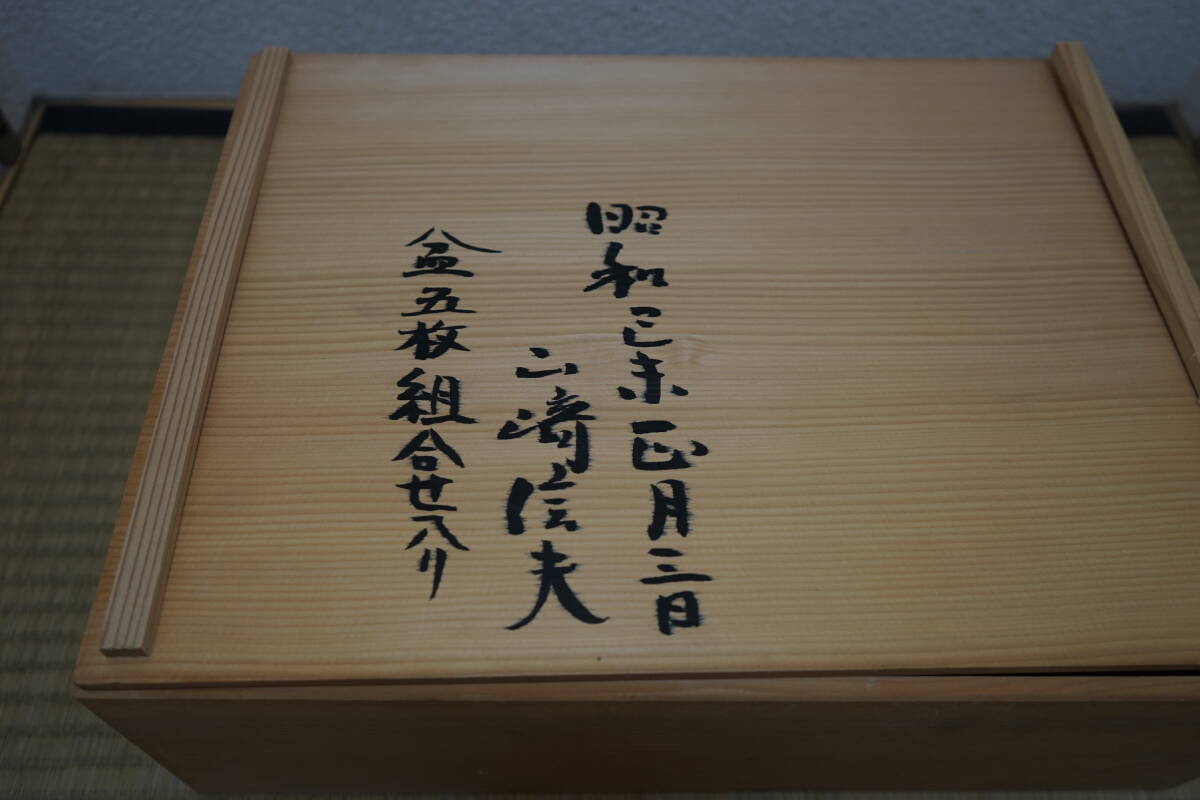 昭和己未正月三日
山崎信夫
盆五枚組合せ入り